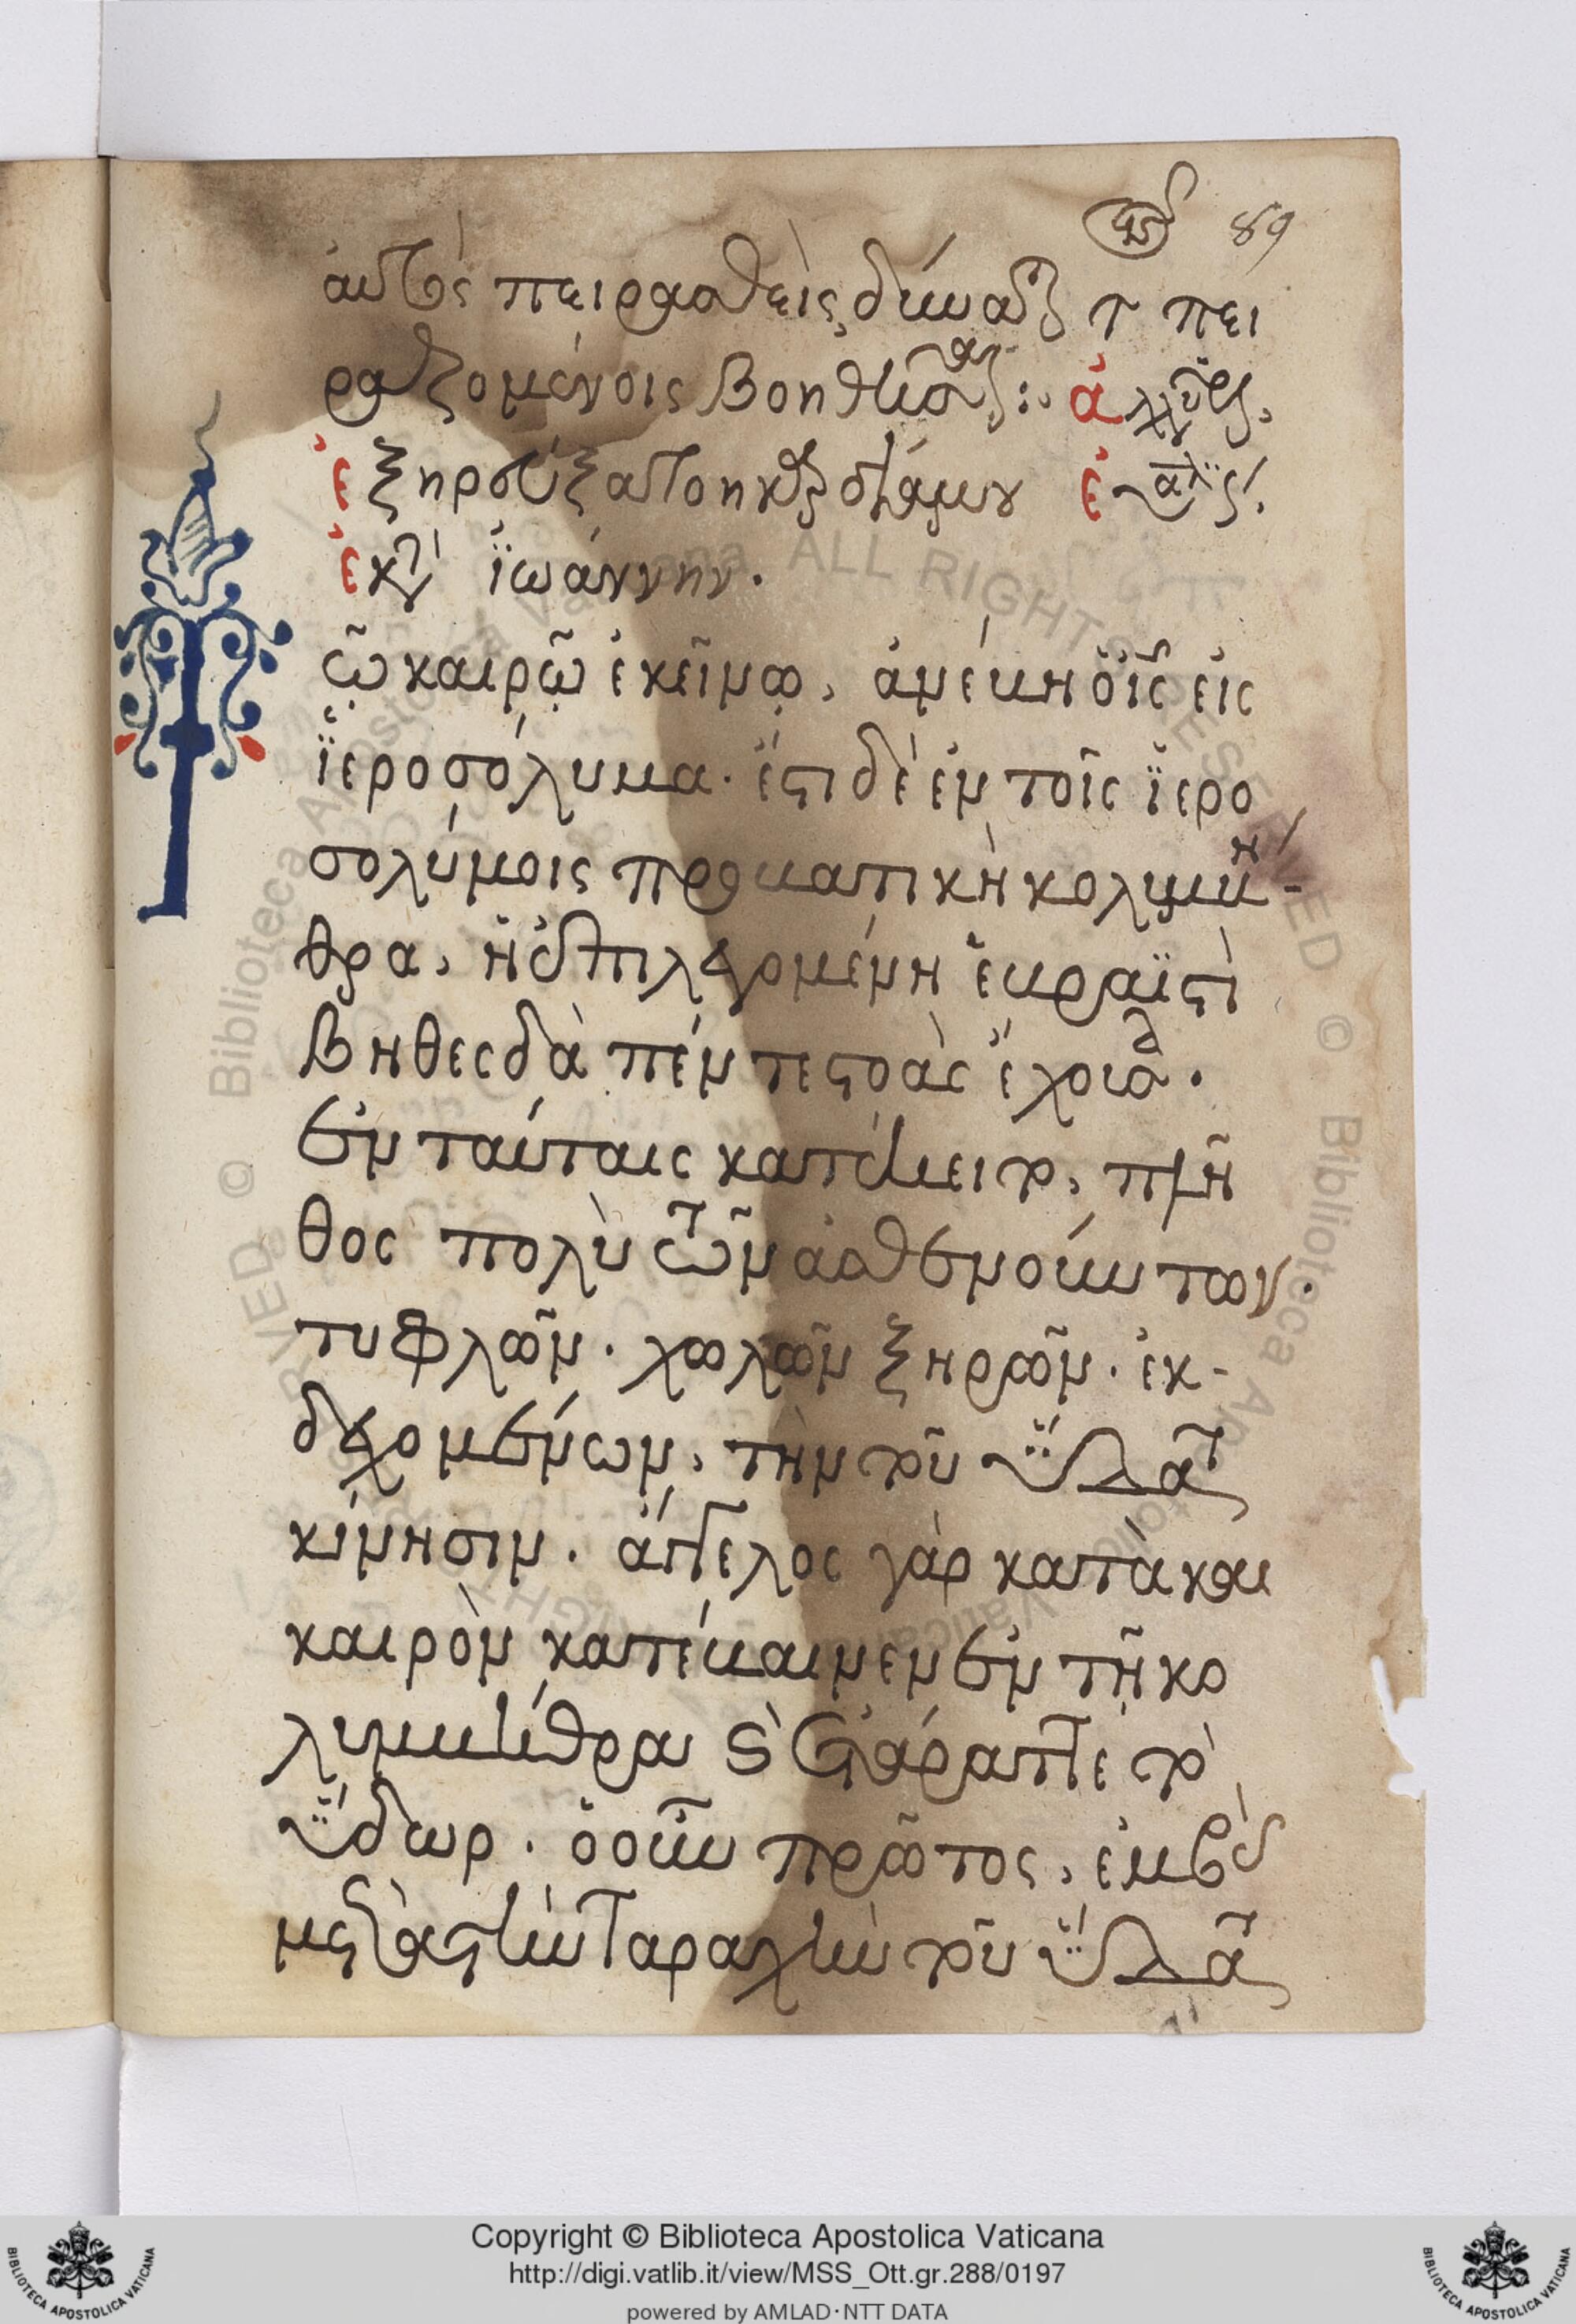 89
αὐτὸς πειρασθεὶς, δύναται τ πει
ραζομένοις βοηθῆσαι : ἀλληλούϊα,
ἐξηρεύξατο ἡ καρδία μου
ἐκ τ ϊωάννην .
τῶ καιρῶ ἐκείνω, ἀνέβη ὁ ἰς εἰς
ϊεροσόλυμα · ἔστι δὲ ἐν τοῖς ϊερο
σολύμοις προβατικὴ κολυμβή-
θρα, ἡ ἐπιλεγομένη ἑβραϊστὶ
βηθεσδὰ πέντε στοὰς ἔχουσα ·
ἐν ταύταις κατέκειτο, πλῆ
θος πολὺ τῶν ἀσθενούντων ·
τυφλῶν · χωλῶν ξηρῶν · ἐκ-
δεχομένων, τὴν τοῦ ὕδατ
κίνησιν · ἄγγελος γὰρ κατὰ και
καιρὸν κατέβαινεν ἐν τῆ κο
λυμβήθρα καὶ ἐτάραττε τὸ
ὕδωρ · ὁ οὖν πρῶτος, ἐμβὰς
μετὰ τὴν ταραχὴν τοῦ ὕδατ
Copyright © Biblioteca Apostolica Vaticana
http://digi.vatlib.it/view/MSS_Ott.gr.288/0197
powered by AMLAD·NTT DATA
BIBLIOTECA APOSTOLICA VATICANA
BIBLIOTECA APOSTOLICA VATICANA